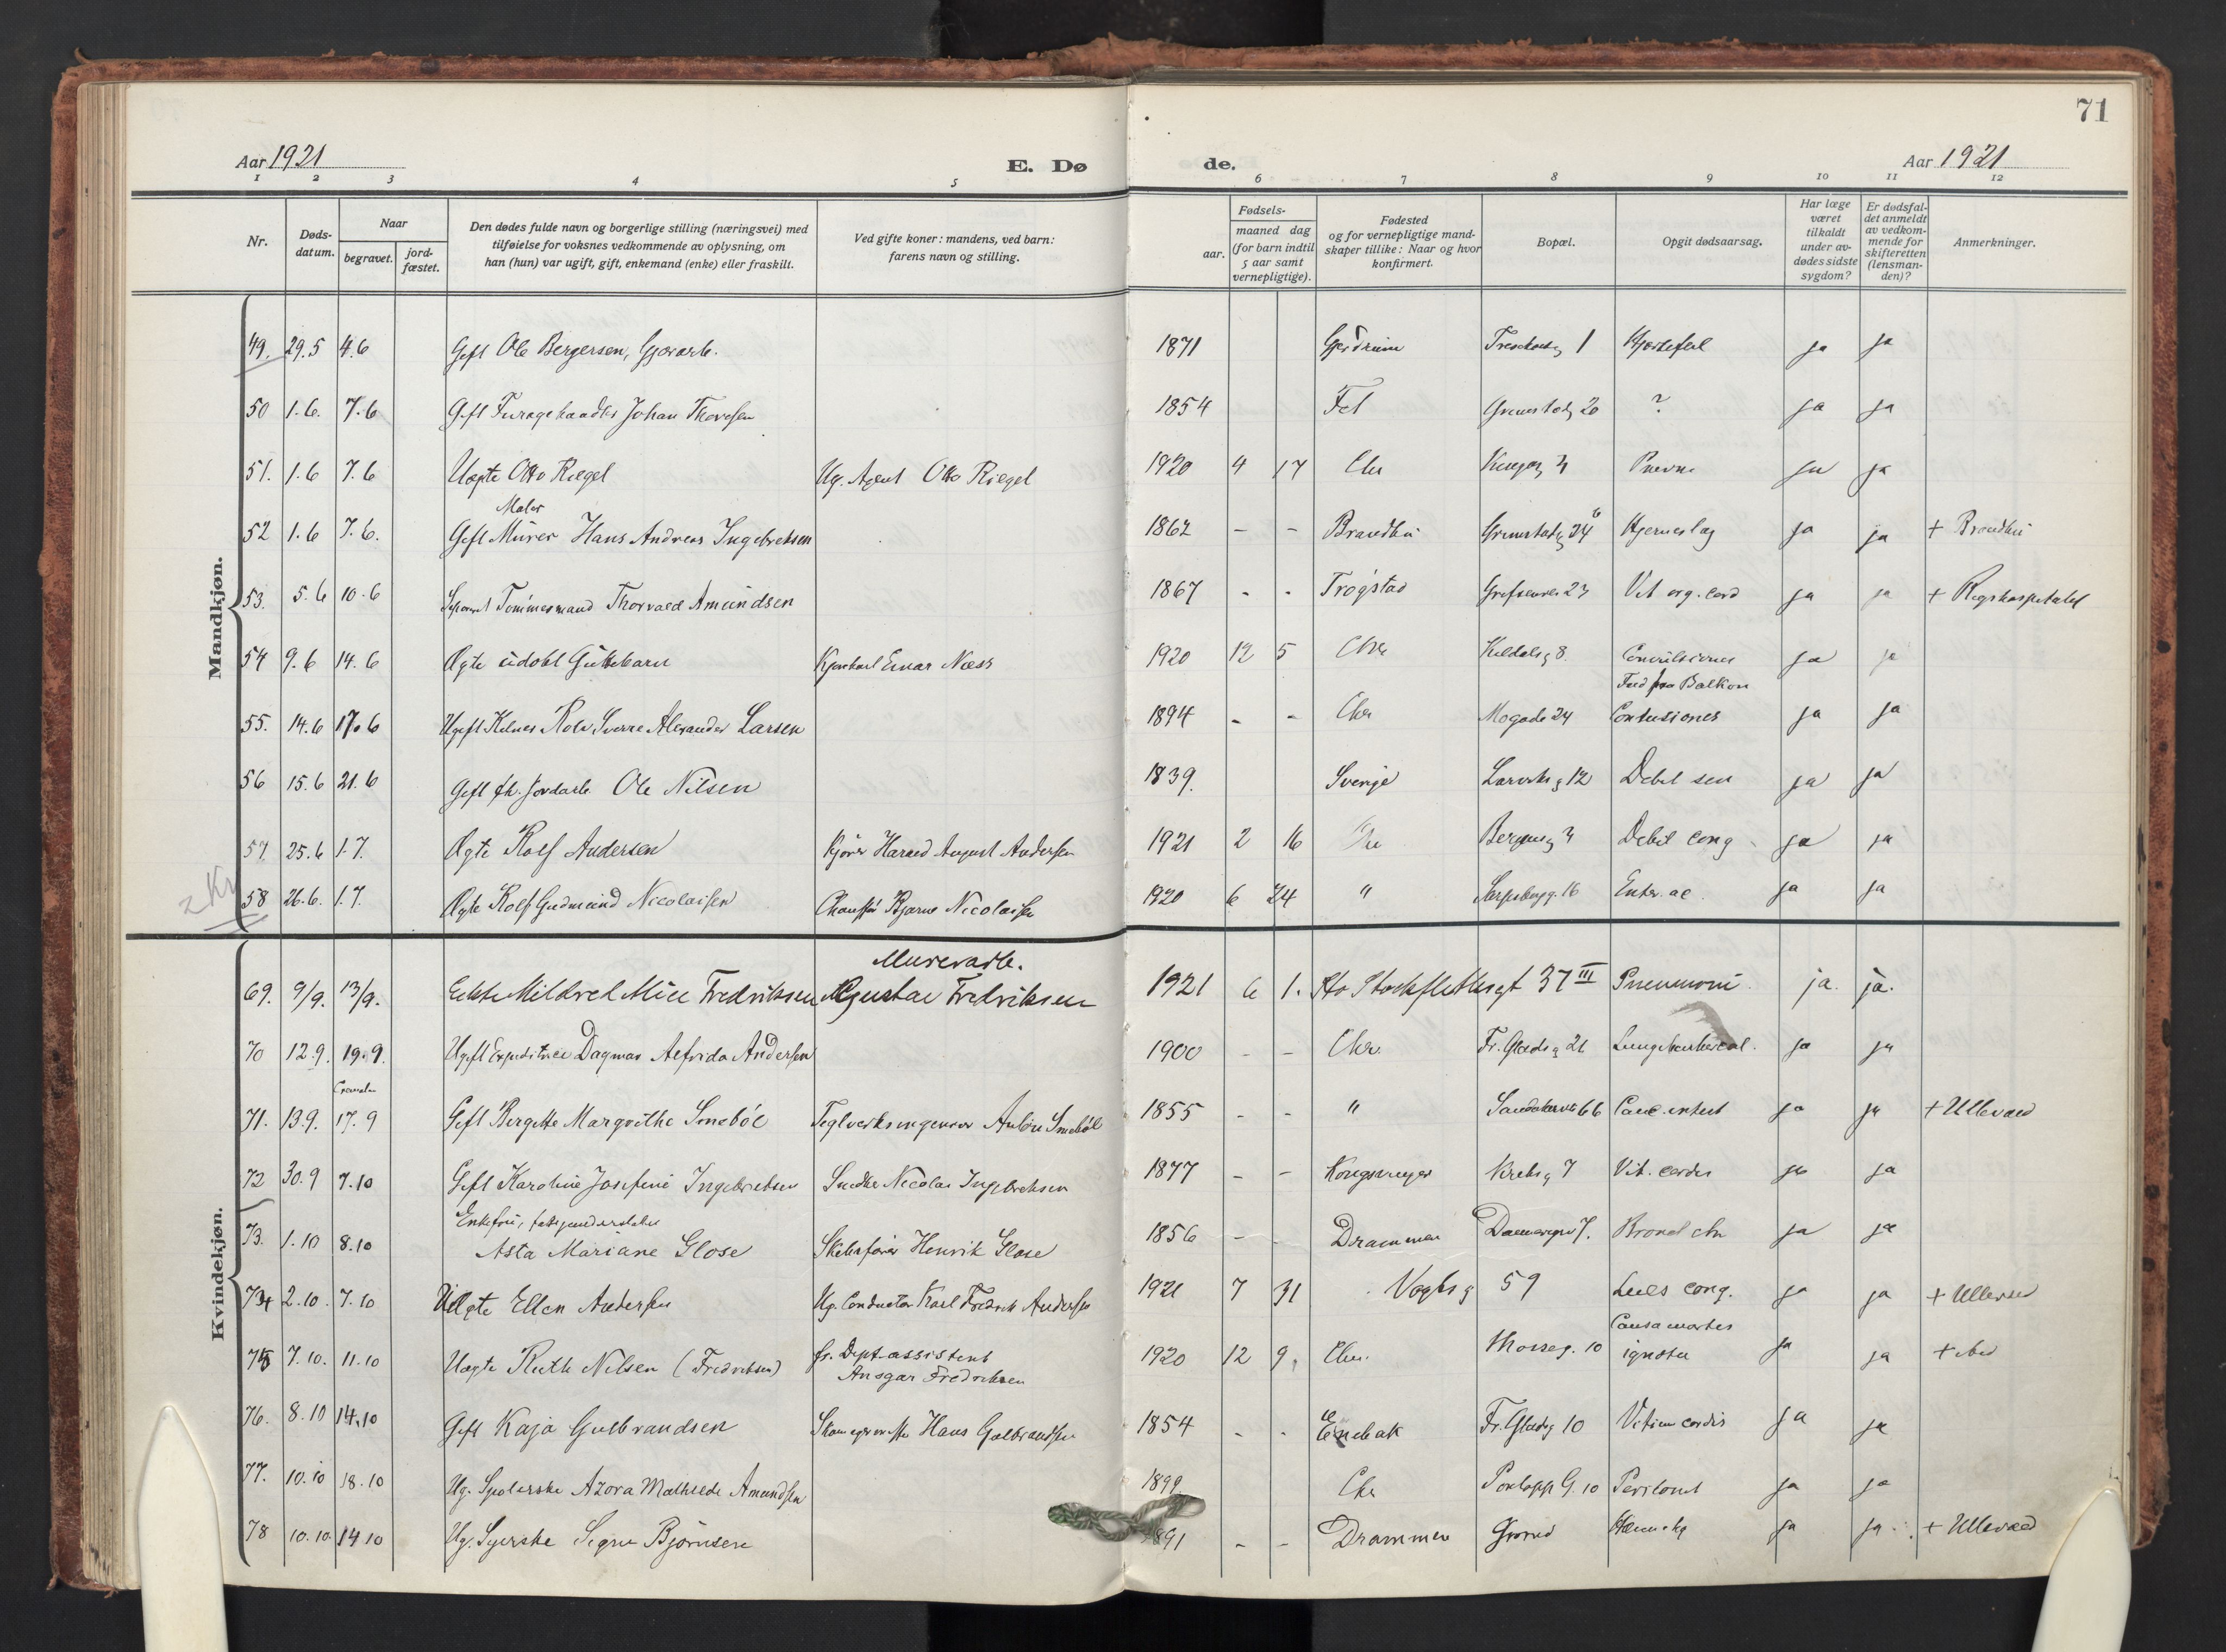 71
Aar 1921
E. Dø
de.
Aar 1921
1 2 3 4 5 6 7 8 9 10 11 12
Nr.
Døds-
datum.
Naar
begravet.
jord-
fæstet.
Den dødes fulde navn og borgerlige stilling (næringsvei) med
tilføielse for voksnes vedkommende av oplysning, om
han (hun) var ugift, gift, enkemand (enke) eller fraskilt.
Ved gifte koner: mandens, ved barn:
farens navn og stilling.
Fødsels-
aar.
maaned dag
(for barn indtil
5 aar samt
vernepligtige).
Fødested
og for vernepligtige mand-
skaper tillike: Naar og hvor
konfirmert.
Bopæl.
Opgit dødsaarsag.
Har læge
været
tilkaldt
under av-
dødes sidste
sygdom?
Er dødsfal-
det anmeldt
av vedkom-
mende for
skifteretten
(lensman-
den)?
Anmerkninger.
Mandkjøn.
49. 29.5 4.6 Gift Ole Bergersen, 1871 Gjerdrum 1 ja ja
50 1.6. 7.6 Gift Johan Thoresen 1854 Fet 20 ? ja ja
51. 1.6 7.6 Uegte Otto Riegel Ug. Agent Otto Riegel 1920 4 17 Chr ja ja
Maler
52 1.6 7.6. Gift Murer Hans Andreas Ingebretsen 1862 - - Brandbu Hjerneslag ja ja + Brandbu
53. 5.6 10.6 Tømmermand Thorvald Amundsen 1867 - - Trøgstad Vit org. cord ja ja + Rigshospitalet
54 9.6 14.6 Ægte udøbt Guttebarn Einar Næss 1920 12 5 Chr 8. Convulsiones ja ja
Fald fra Balkon
55. 14.6 17.6 Ugift Kelner Rolv Sverre Alexander Larsen 1894 - - Chr Mogade 24 Contusiones ja ja
56 15.6 21.6 Gift fh. Jordarb. Ole Nilsen 1839. Sverige Larviksg 12 Debil sen ja ja
57. 25.6 1.7. Ægte Rolf Andersen Kjører Harald August Andersen 1921 2 16 Chr Debil cong ja ja
58 26.6. 1.7. Ægte Rolf Gudmund Nicolaisen Chauffør Bjarne Nicolaisen 1920 6 24 " Sarpsborgg. 16 Enter. ac. ja ja
Kvindekjøn.
Murerarb.
69. 9/9. 13/9. Ekte Mildred Alice Fredriksen Gustav Fredriksen 1921 6 1. Stockflethsgt 37 III Pneumoni. ja. ja.
70 12.9. 19.9. Ugift Expeditrice Dagmar Alfrida Andersen 1900 - - Chr. Fr. Gladsg 21 ja ja
71. 13.9. 17.9 Gift Bergitte Margrethe Smebøl Teglverksingeniør Smebøl 1855 - - " Sandakerv 66 Canc. intest ja ja + Ullevaal
72 30.9 7.10 Gift Karoline Josefine Ingebretsen Snedker Nicolai Ingebretsen 1877 - - Kongsvinger Krebsg 7 Vit. cordis ja ja
Enkefru,
73. 1.10 8.10 Asta Mariane Glose Skibsfører Henrik Glose 1856 - - Drammen 7. ja ja
74 2.10. 7.10 Uegte Ellen Andersen Ug. Conductør Karl Fredrik Andersen 1921 7 31 Vogtsg 59 Lues cong. ja ja + Ullevaal
75 7.10. 11.10 Uegte Ruth Nilsen (Fredriksen) fr. Dept.assistent
Ansgar Fredriksen 1920 12 9. Chr. Thorseg. 10 Causa mortis
ignota ja ja +
76. 8.10 14.10 Gift Kaja Gulbrandsen Skomagermester Hans Gulbrandsen 1854 - - Enebak Fr. Gladsg 10 Vitium cordis ja ja
77. 10.10 18.10 Ug. Spolerske Azora Mathilde Amundsen 1899 Chr G. 10 Peritonit ja ja
78 10.10 14 10 Ug. Syerske Signe Bjørnsen 1891 - - Drammen Grorud ja ja + Ullevaal